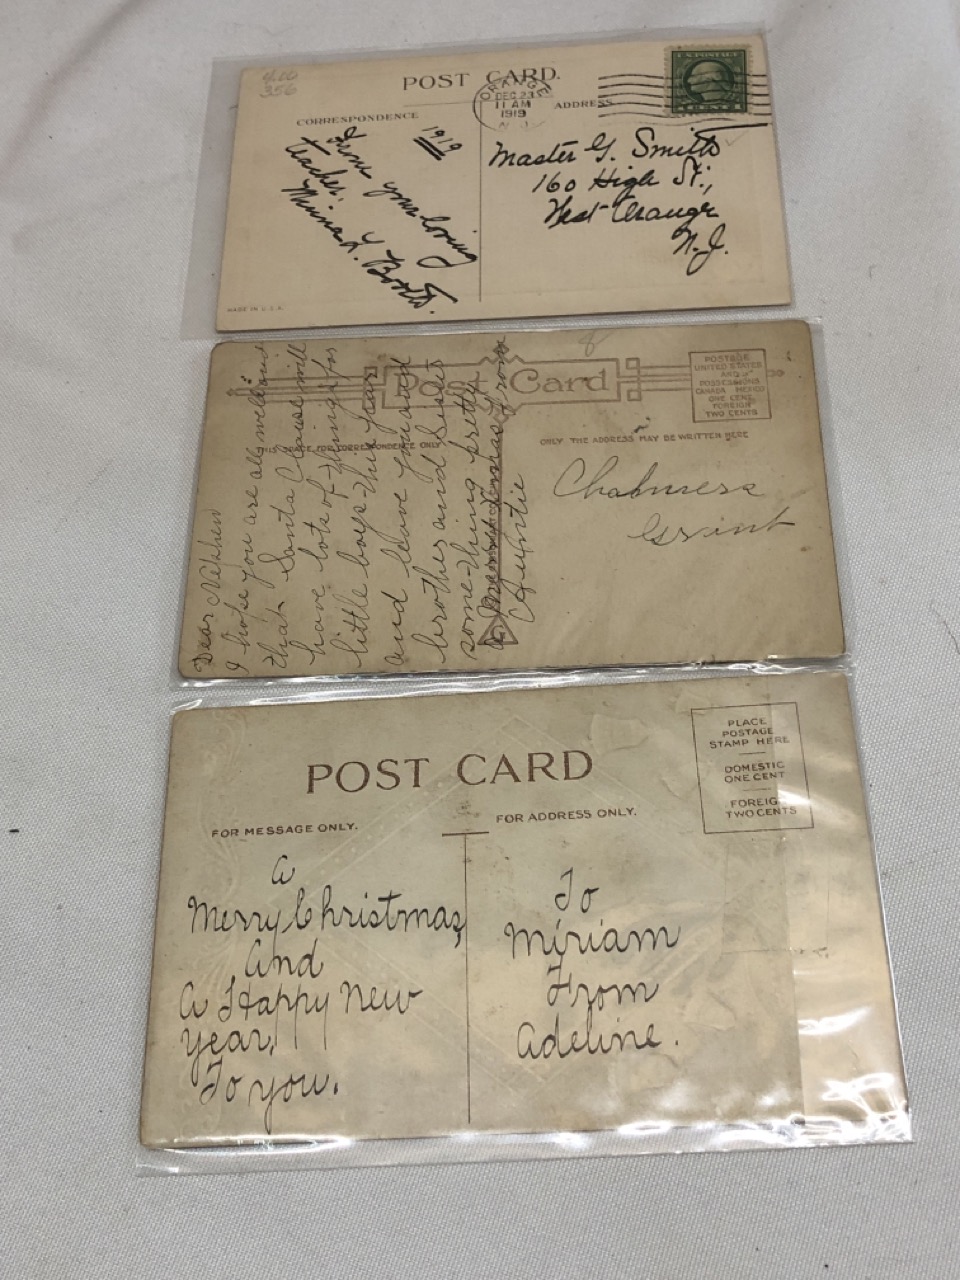 4.00
356
POST CARD.
ORANGE
DEC 23
11 AM
1919
N.J.
U.S. POSTAGE
CORRESPONDENCE
ADDRESS
1919
From your loving
teacher,
Minna L.
Master G. Smith
160 High St.,
West Orange
N.J.
MADE IN U.S.A.
8
Post Card
POSTAGE
UNITED STATES
AND
POSSESSIONS
CANADA MEXICO
ONE CENT
FOREIGN
TWO CENTS
THIS SPACE FOR CORRESPONDENCE ONLY
ONLY THE ADDRESS MAY BE WRITTEN HERE
Dear Nephew
I hope you are all well and
that Santa Clause will
have lots of things for
little boys this year
and leave you and
brother and Sister
some-thing pretty
a Merry Xmas from
Auntie
Chalmers
Grant
POST CARD
PLACE
POSTAGE
STAMP HERE
DOMESTIC
ONE CENT
FOREIGN
TWO CENTS
FOR MESSAGE ONLY.
FOR ADDRESS ONLY.
A
Merry Christmas,
And
A Happy New
Year,
To you.
To
Miriam
From
Adeline.